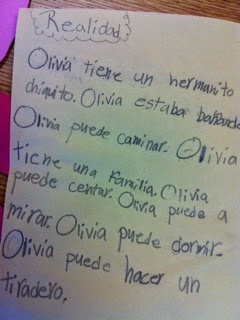 Realidad
Olivia tiene un hermanito
chiquito. Olivia estaba bañando
Olivia puede caminar. Olivia
tiene una familia. Olivia
puede centar. Olivia puede a
mirar. Olivia puede dormir.
Olivia puede hacer un
tiradero.